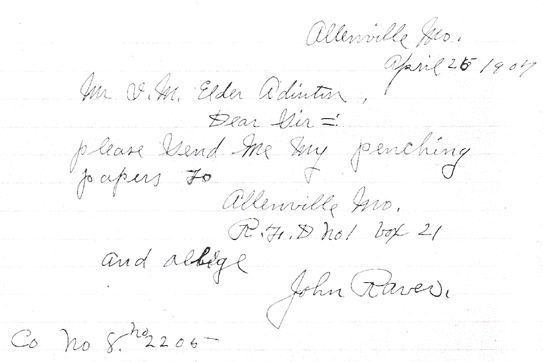 Allenville Mo.
April 25 1907
Mr I. M. Elder Adintin,
Dear Sir =:
please Send Me My penching
papers to
Allenville Mo.
R. F. D No 1 box 21
and oblige
John Raves.
Co No 8. no 2205